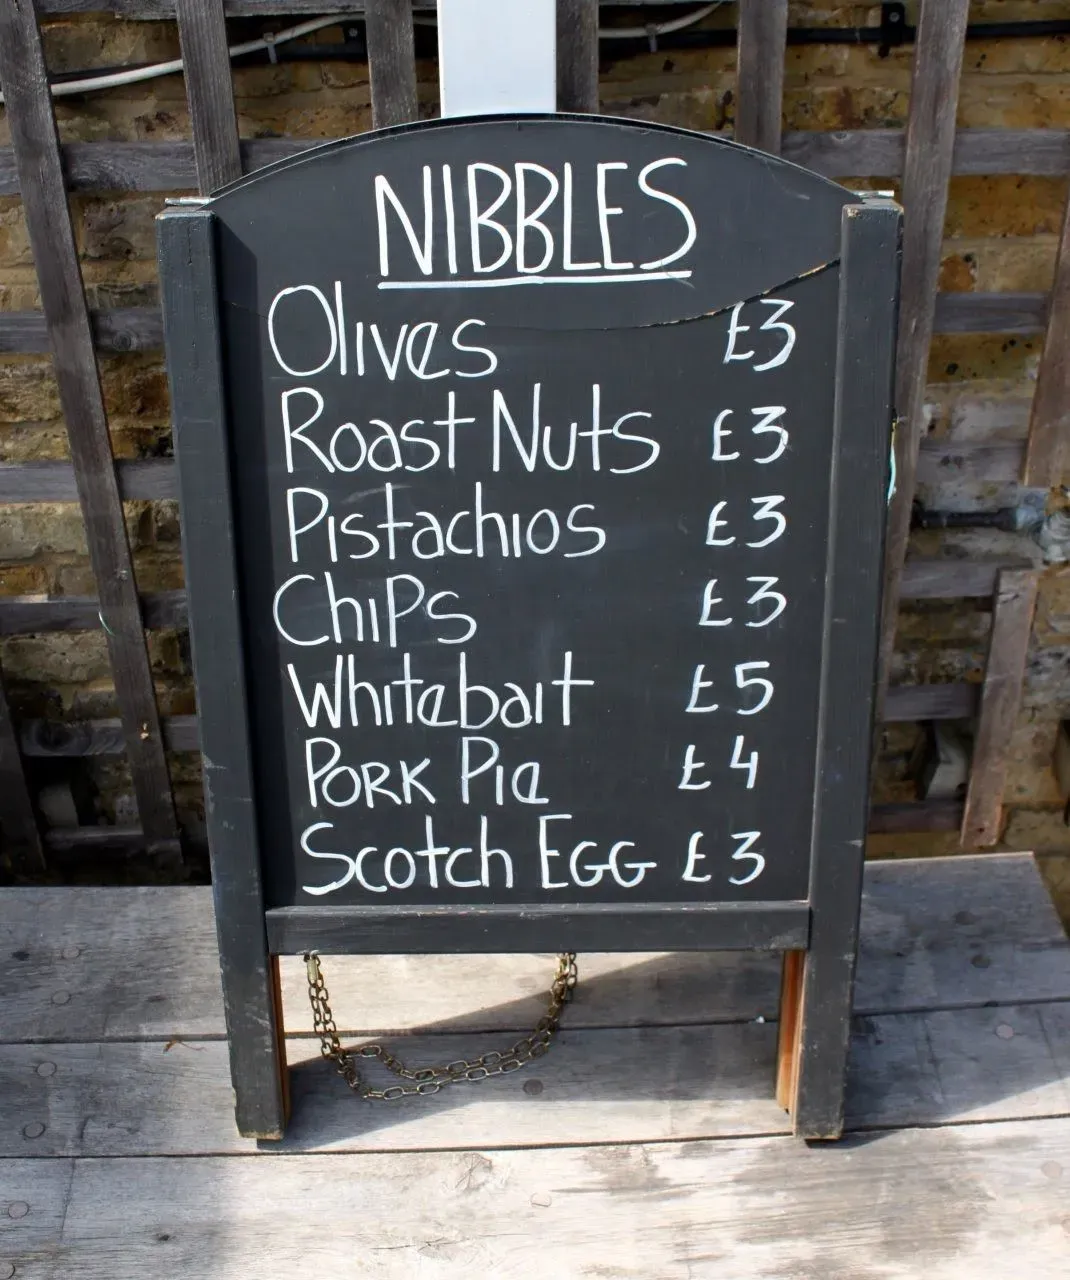 NIBBLES
Olives £3
Roast Nuts £3
Pistachios £3
Chips £3
Whitebait £5
Pork Pie £4
Scotch Egg £3